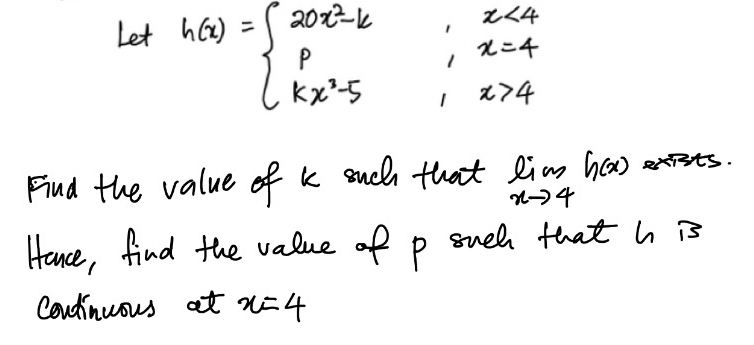 Let h(x) = { 20x²-k , x<4
p , x=4
kx³-5 , x>4
Find the value of k such that lim h(x) exists.
x→4
Hence, find the value of p such that h is
continuous at x=4